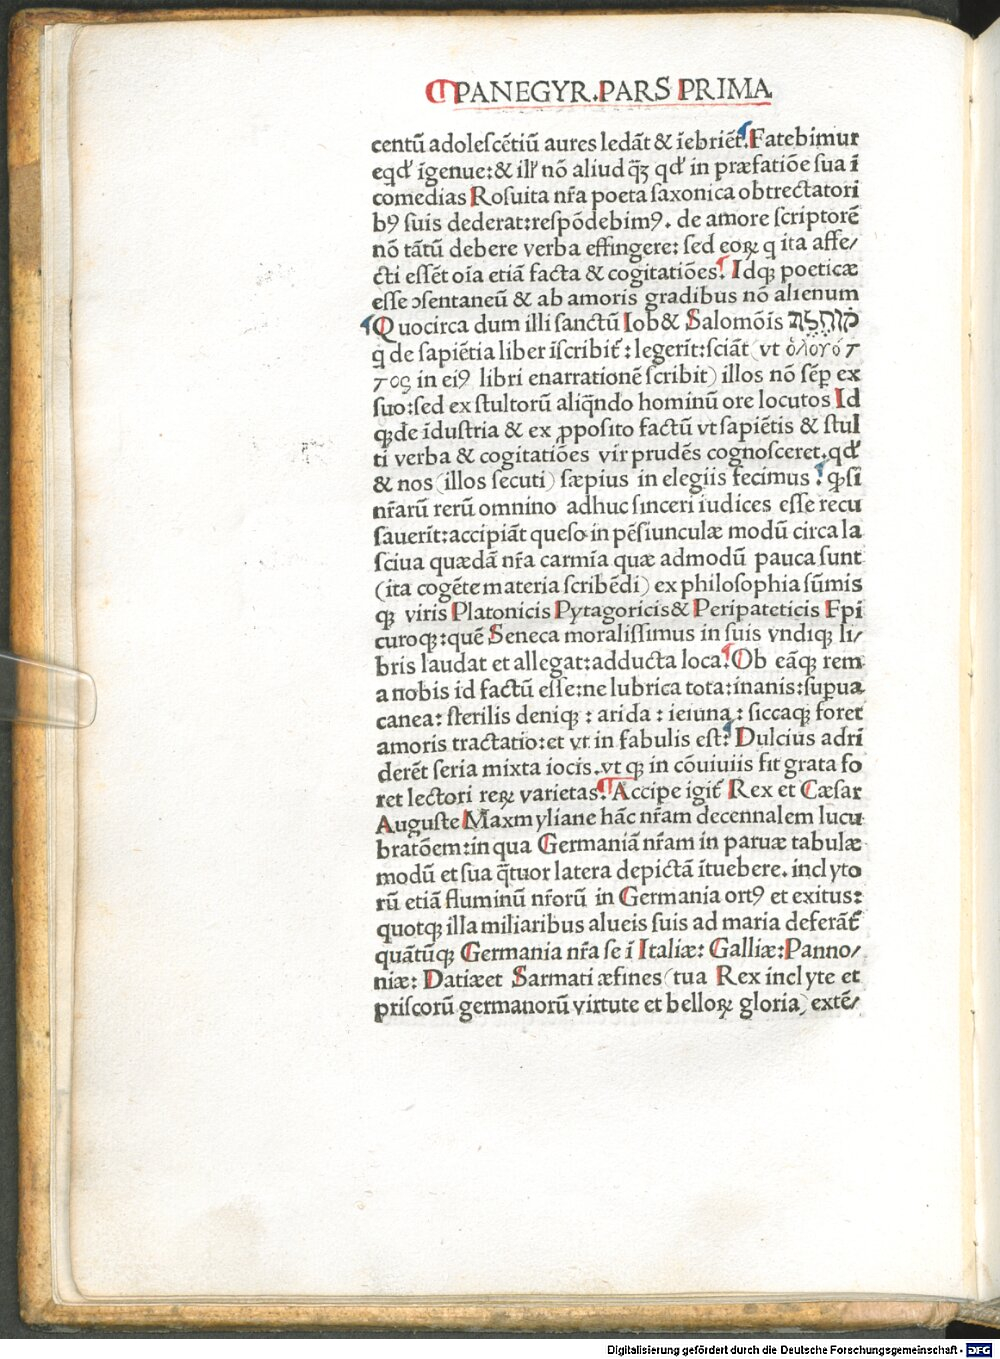 PANEGYR. PARS PRIMA
centū adolescētiū aures ledāt & īebriēt. Fatebimur
eqdē īgenue: & illḋ nō aliud q̄ꝫ qḋ in præfatiōe sua ī
comedias Rosuita nr̄a poeta saxonica obtrectatori
bꝰ suis dederat: respōdebimꝰ. de amore scriptorē
nō tātū debere verba effingere: sed eoꝝ q ita affe/
cti essēt oīa etiā facta & cogitatiōes. Idqꝫ poeticæ
esse ɔsentaneū & ab amoris gradibus nō alienum
Quocirca dum illi sanctū Iob & Salomōis קהלת
q̄ de sapiētia liber īscribit̄: legerīt: sciāt (vt ὁλογότ
τος in eiꝰ libri enarrationē scribit) illos nō sēꝑ ex
suo: sed ex stultorū aliq̄ndo hominū ore locutos Id
qꝫ de īdustria & ex ꝓposito factū vt sapiētis & stul
ti verba & cogitatiōes vir prudēs cognosceret. qḋ
& nos (illos secuti) sæpius in elegiis fecimus. qꝫ si
nr̄arū rerū omnino adhuc sinceri iudices esse recu
sauerīt: accipiāt queso in pēsiunculæ modū circa la
sciua quædā nr̄a carmīa quæ admodū pauca sunt
(ita cogēte materia scribēdi) ex philosophia sūmis
qꝫ viris Platonicis Pytagoricis & Peripateticis Epi
curoqꝫ: quē Seneca moralissimus in suis vndiqꝫ li/
bris laudat et allegat: adducta loca. Ob eāqꝫ rem
a nobis id factū esse: ne lubrica tota: inanis: supua
canea: sterilis deniqꝫ: arida: ieiuna: siccaqꝫ foret
amoris tractatio: et vt in fabulis est: Dulcius adri
derēt seria mixta iocis. vt qꝫ in cōuiuiis fit grata fo
ret lectori reꝝ varietas. Accipe igit̄ Rex et Cæsar
Auguste Maxmyliane hāc nr̄am decennalem lucu
bratōem: in qua Germaniā nr̄am in paruæ tabulæ
modū et sua q̄tuor latera depictā ītuebere. inclyto
rū etiā fluminū nr̄orū in Germania ortꝰ et exitus:
quotqꝫ illa miliaribus alueis suis ad maria deferāt̄
quātūqꝫ Germania nr̄a se ī Italiæ: Galliæ: Panno/
niæ: Datiæ et Sarmati æ fines (tua Rex inclyte et
priscorū germanorū virtute et belloꝝ gloria) extē/
Digitalisierung gefördert durch die Deutsche Forschungsgemeinschaft - DFG